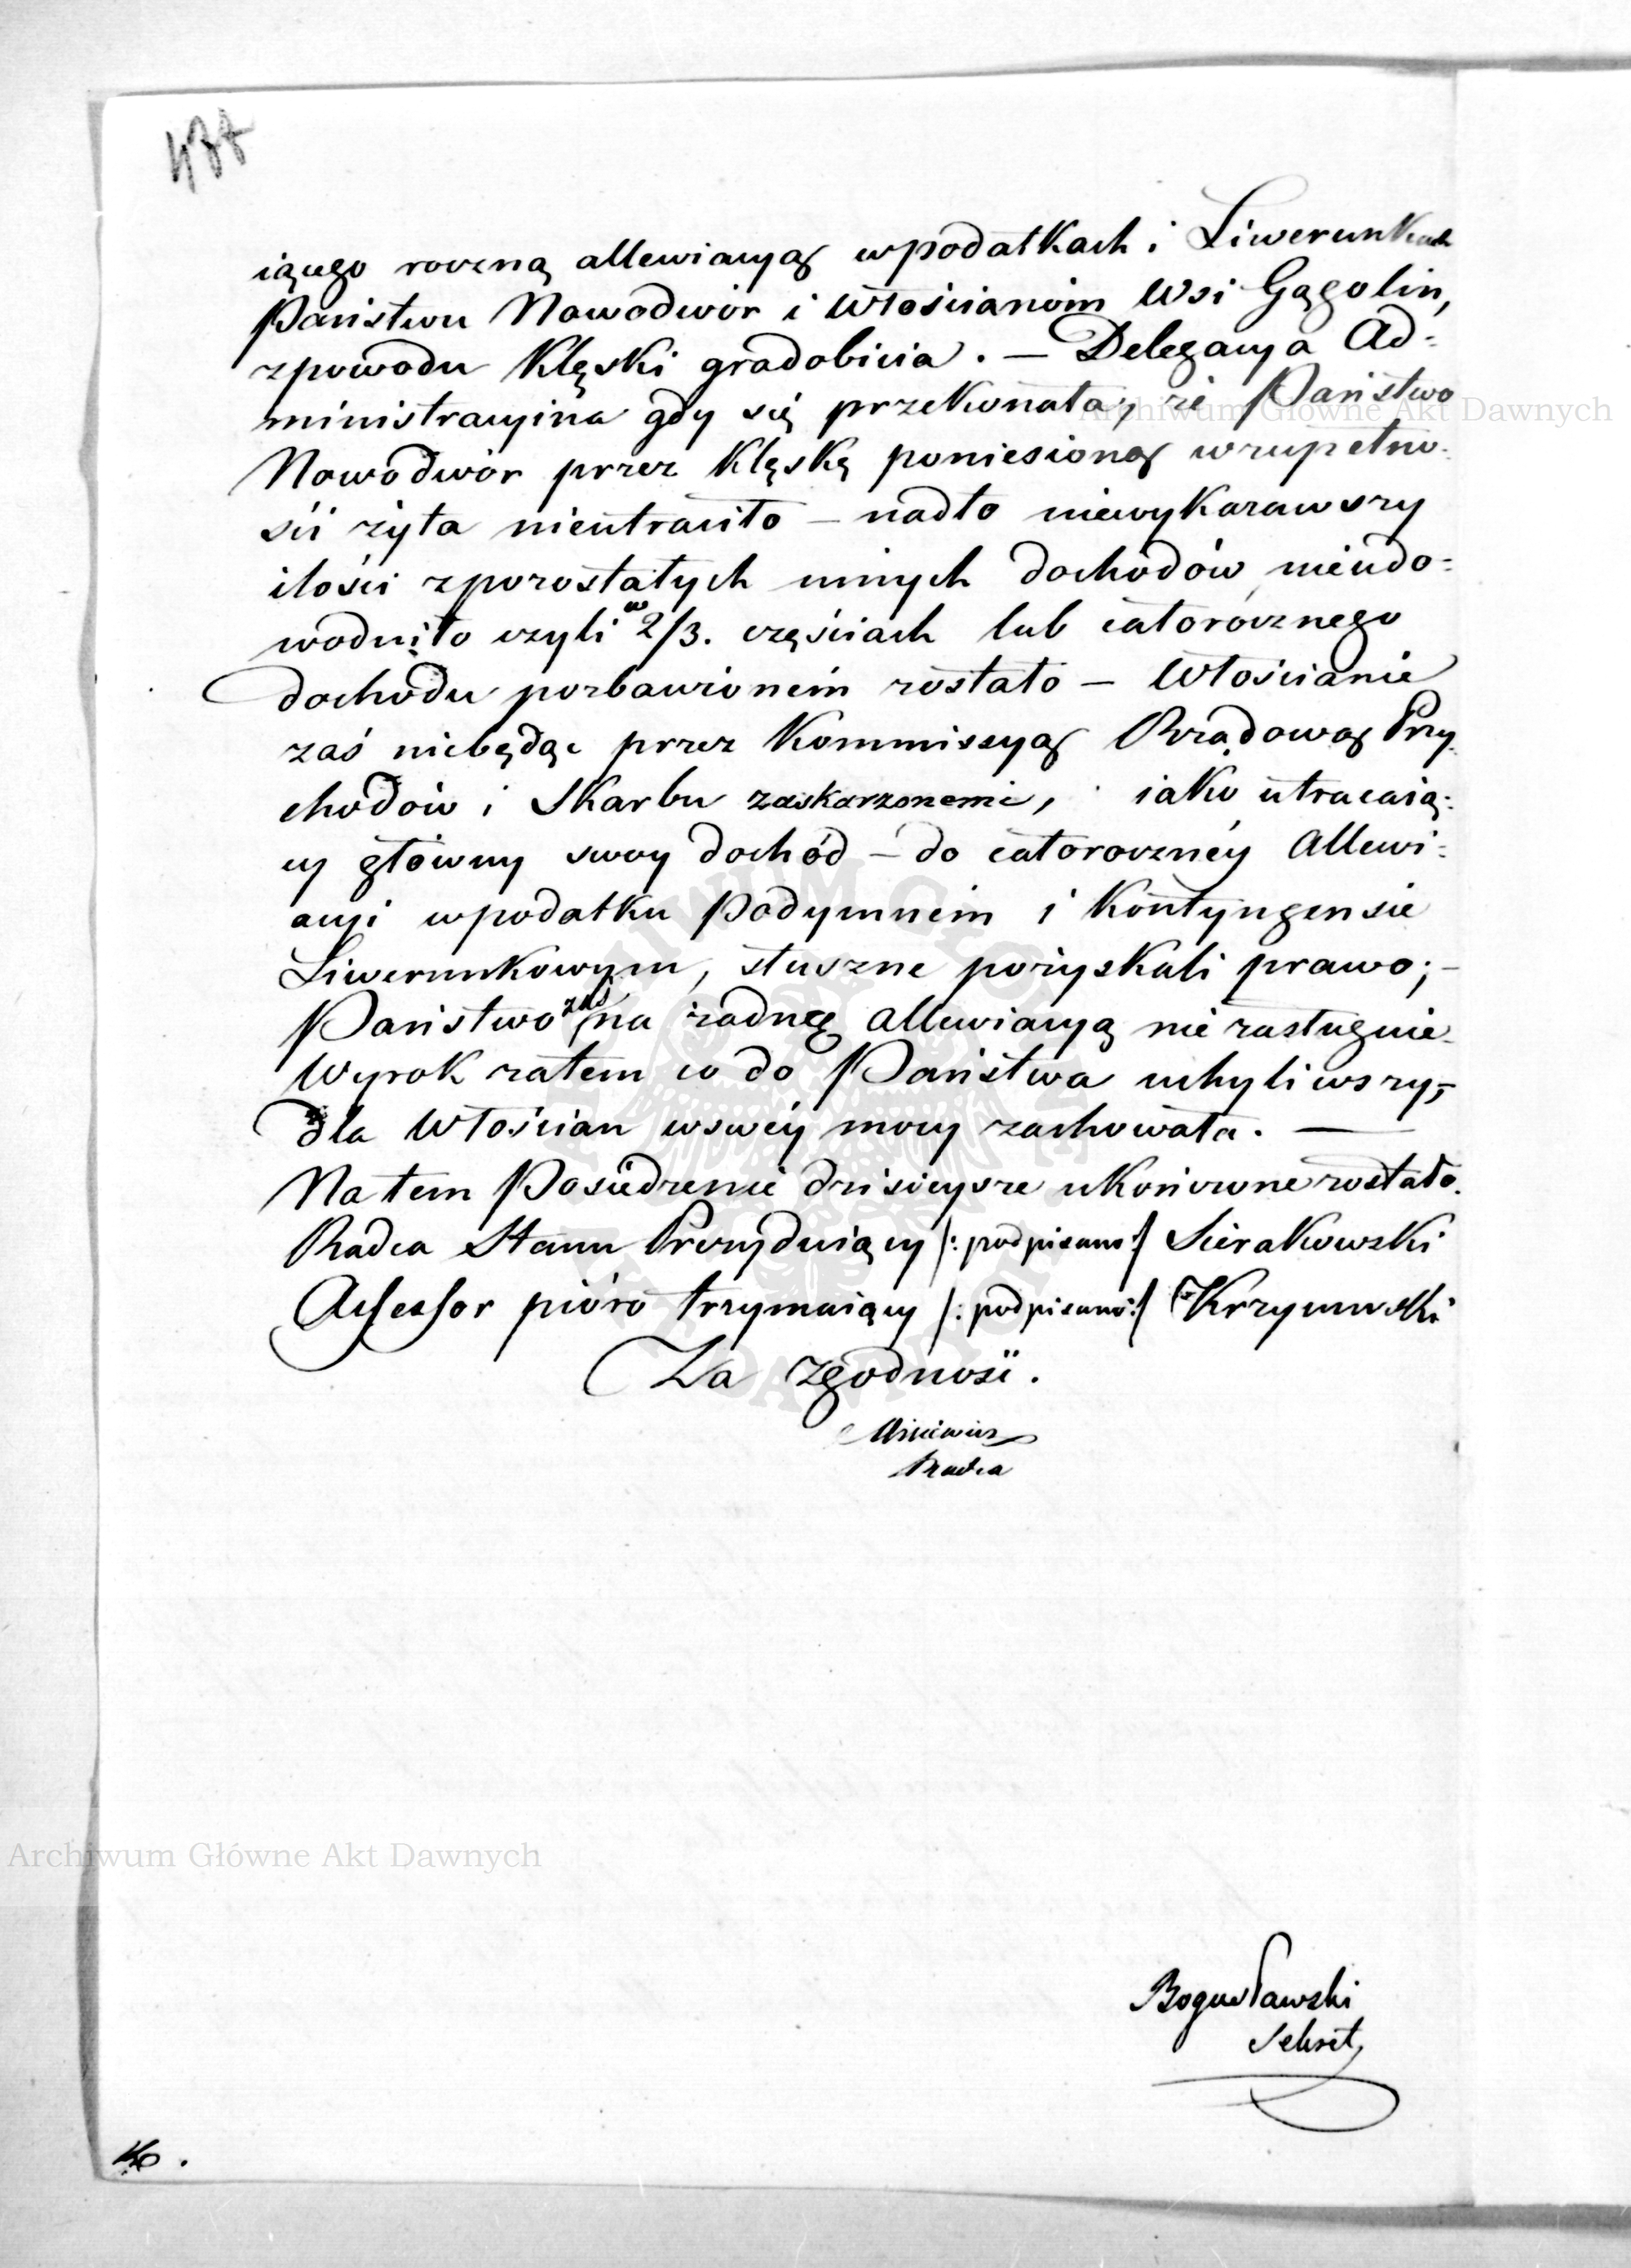 437
iącego roczną allewiacyą wpodatkach i Liwerunkach
Państwu Nowodwór i Włościanóm Wsi Gągolin,
zpowodu Klęski gradobicia. — Delegacya Ad=
ministracyina gdy się przekonała, że Państwo
Nowodwór przez Klęskę poniesioną wzupełno-
ści żyta nieutraciło — nadto niewykazawszy
ilości zpozostałych innych dochodów nieudo=
wodniło czyli w 2/3. częściach lub całorocznego
dochodu pozbawioném zostało — Włościanie
zaś niebędąc przez Kommissyą Rządową Przy
chodów i Skarbu zaskarżonemi, iako utracaią=
cy główny swoy dochód — do całoroczney Allewi=
acyi wpodatku Podymném i Kontyngensie
Liwerunkowym, słuszne pozyskali prawo; —
Państwo zaś na żadnę allewiacyą nie zasługuie.
Wyrok zatem co do Państwa uchyliwszy, —
dla Włościan wswéy mocy zachowała. —
Na tem Posiedzenie dzisieysze ukończone zostało.
Radca Stanu Prezyduiący /: podpisano :/ Sierakowski
Assessor pióro trzymaiący /: podpisano :/ Krzymuski
Za zgodność.
Radca
Bogusławski
Sekret
Archiwum Główne Akt Dawnych
Archiwum Główne Akt Dawnych